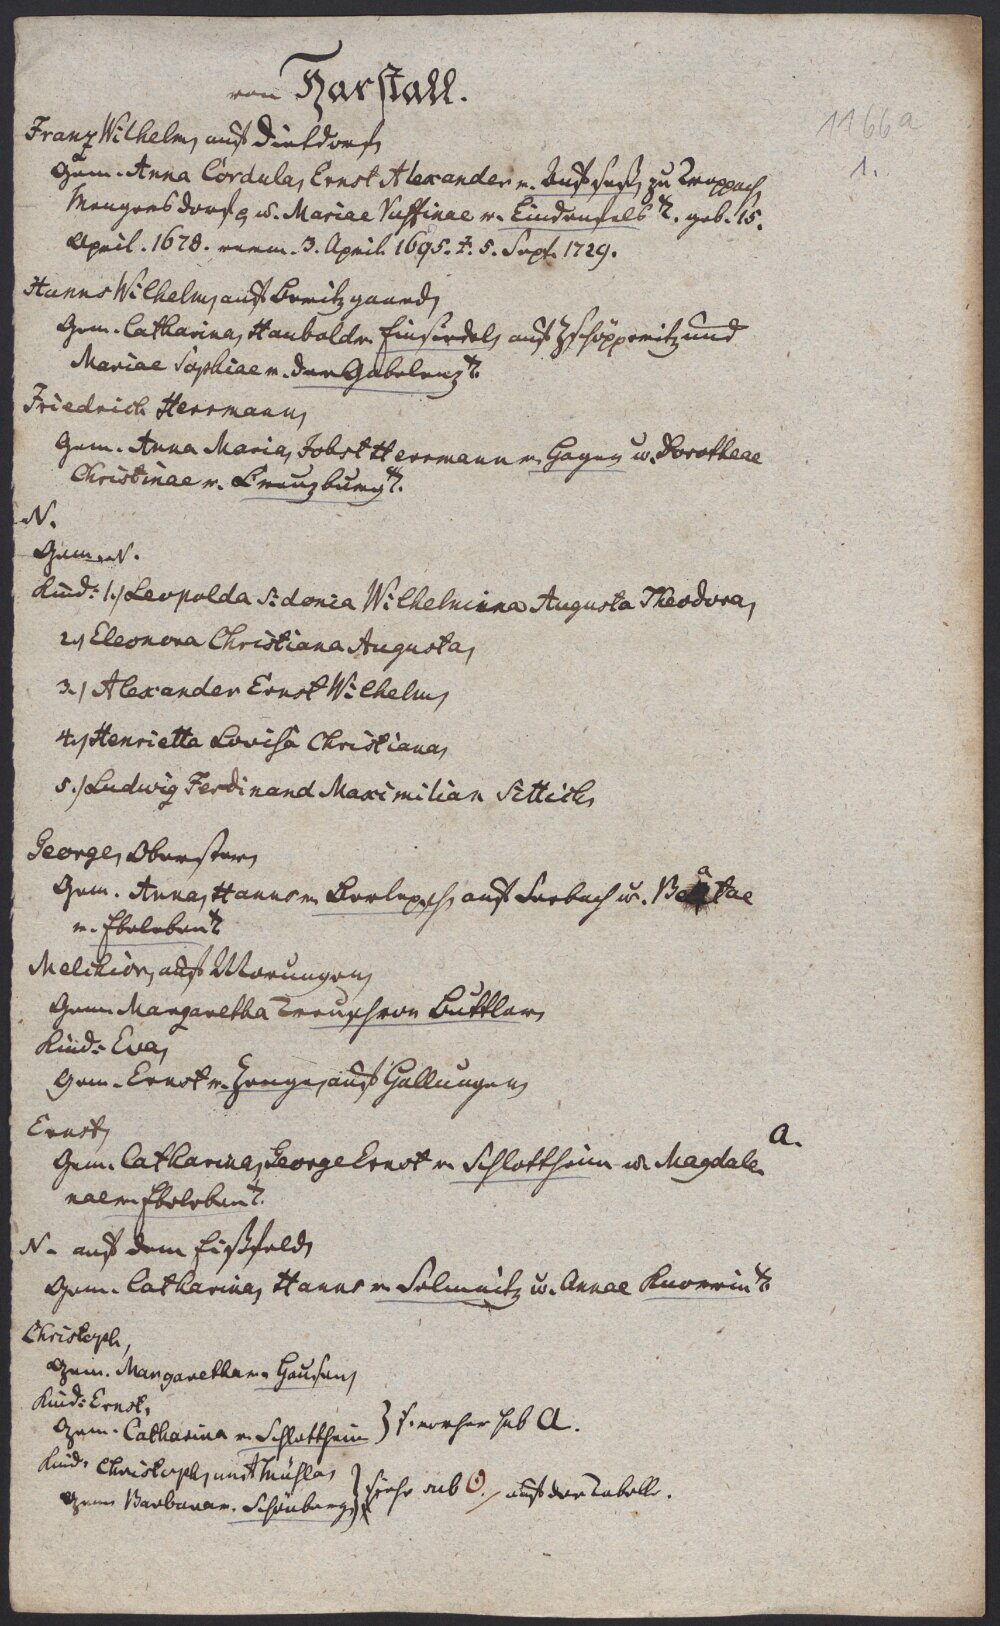 von Harstall.
1166a
1.
Franz Wilhelm, auf Dietdorf,
Gem. Anna Cordula, Ernst Alexander v. Aufseß, zu Troppach,
Mengersdorf u. Mariae v. Eindenfels T. geb. 15.
April. 1678. verm. 3. April. 1695. †. 5. Sept. 1729.
Hanns Wilhelm, auf
Gem. Catharina, Haubold v. Einsiedel, auf Zschöpperitz und
Mariae Sophiae v. der Gabelenz T.
Friedrich Herrmann,
Gem. Anna Maria, Jobst Herrmann v. Hagen u. Dorotheae
Christinae v. Creuzburg T.
N.
Gem. N.
Kind: 1.) Leopolda Sidonia Wilhelmina Augusta Theodora,
2.) Eleonora Christiana Augusta,
3.) Alexander Ernst Wilhelm,
4.) Henrietta Lovisa Christiana,
5.) Ludwig Ferdinand Maximilian Sittich,
George, Obrister,
Gem. Anna, Hanns v. Berlepsch, auf Seebach u. Beatae
v. Ebeleben T.
Melchior, auf Morungen,
Gem. Margaretha Treusch von Buttlar,
Kind: Eva,
Gem. Ernst v. Zenge, auf Hallungen,
Ernst,
A.
Gem. Catharina, George Ernst v. Schlottheim u. Magdale
nae v. Ebeleben T.
N. auf dem Eißfeld,
Gem. Catharina, Hanns v. Selmnitz u. Annae Knorrin T.
Christoph,
Gem. Margaretha v. Hausen,
Kind: Ernst,
Gem. Catharina v. Schlottheim } s. vorher sub A.
Kind: Christoph, auf Mühla,
Gem. Barbara v. Schönberg, } siehe sub O. auf der Tabelle.